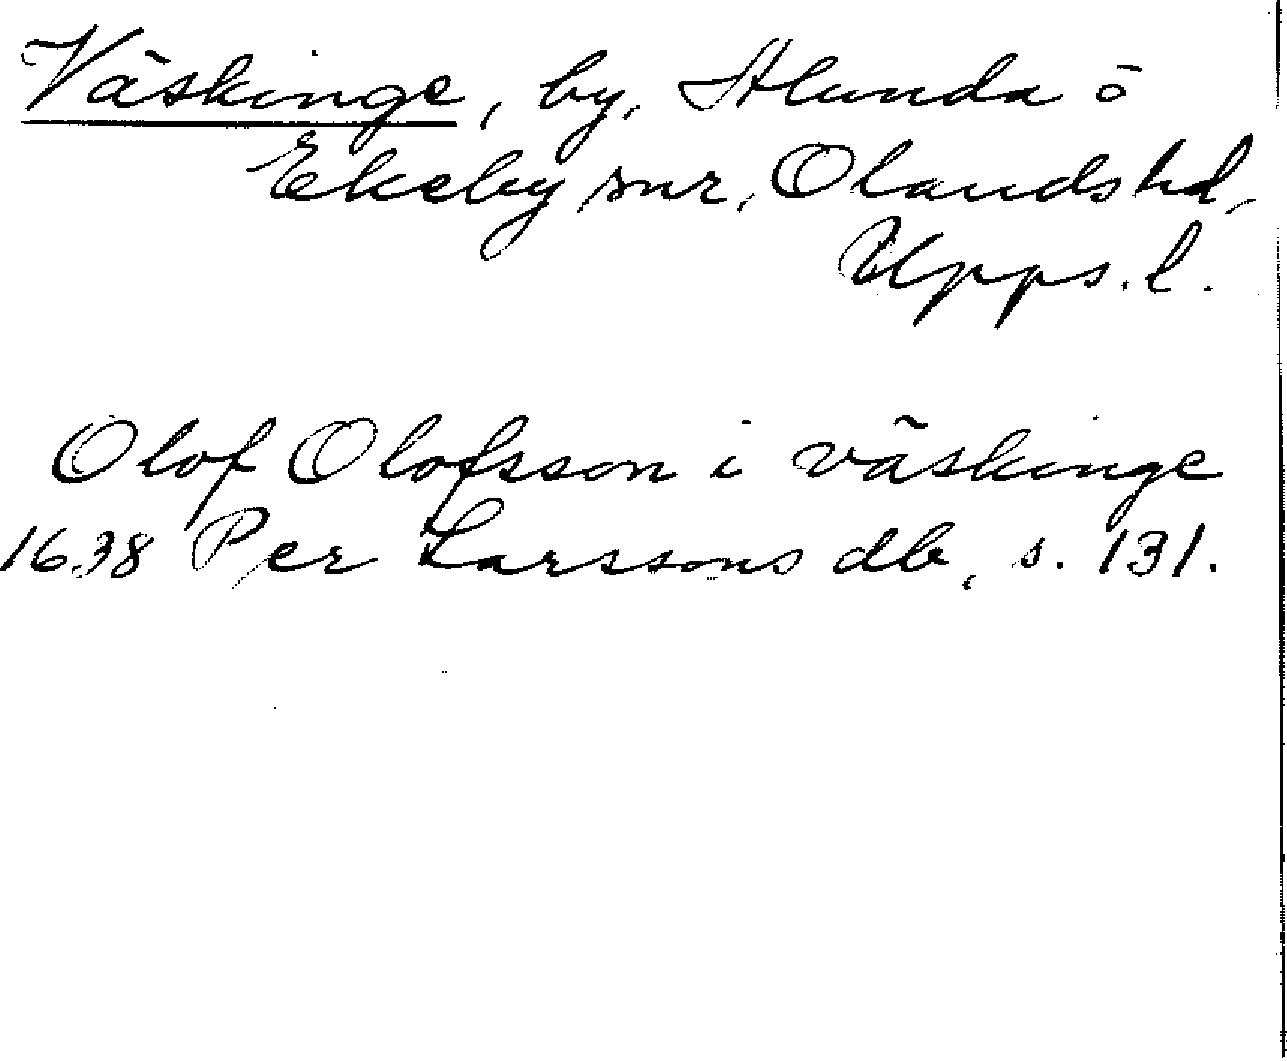 Väskinge, by, Alunda o
Ekeby snr, Olands hd,
Upps. l.
Olof Olofsson i väskinge
1638 Per Larssons db, s. 131.